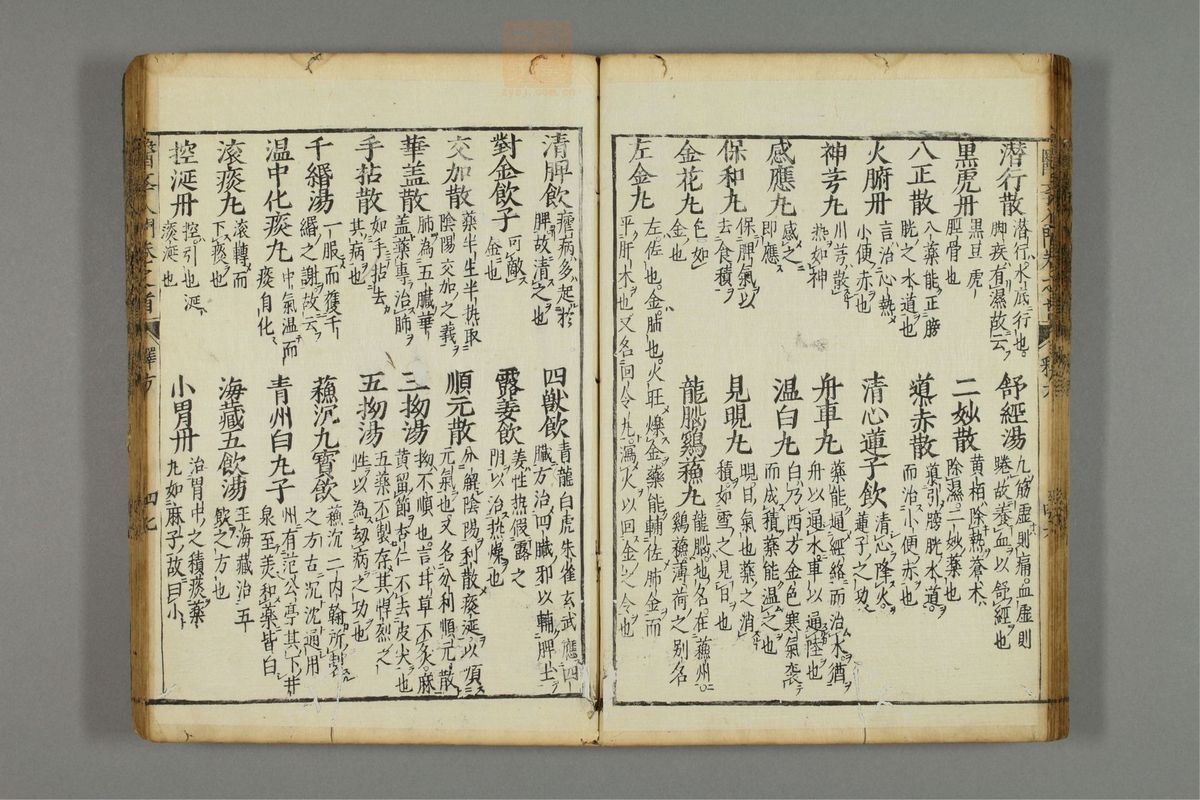 潜行散 潜行水底行也。
脚疾有濕故云
舒經湯 九筋虚則痛。血虚則
踡故養血以舒經也
黒虎丹 黒豆虎
脛骨也
二妙散 黄栢除熱蒼术
除濕二妙藥也
八正散 八藥能正膀
胱之水道也
導赤散 導引膀胱水道。
而治小便赤也
火腑丹 言治心熱
小便赤也
清心蓮子飲 清心降火。
蓮子之功
神芎丸 川芎散
熱如神
舟車丸 藥能通經絡而治水猶
舟以通水。車以通陸也
感應丸 感之
即應
温白丸 白乃西方金色寒氣襲
而成積藥能温之也
保和丸 保脾氣以
去食積
見晛丸 晛日氣也藥之消
積如雪之見日也
金花丸 色如
金也
龍腦鷄蘓丸 龍腦地名。在蘓州。
鷄蘓薄荷之别名
左金丸 左佐也。金肺也。火旺爍金藥能輔佐肺金而
平肝木也又名回令丸。瀉火以回金之令也
清脾飲 瘧病多起於
脾故清之也
四獸飲 青龍白虎朱雀玄武應四
臓方治四臓邪以輔脾土
對金飲子 可敵
金也
露姜飲 姜性熱假露之
陰以治熱燥也
交加散 藥半生半热取
陰陽交加之義
順元散 分解陰陽利散痰涎以順
元氣也又名分利順元散
華盖散 肺為五臓華
盖藥專治肺
三拗湯 拗不順也。言甘草不炙。麻
黄留節杏仁不去皮尖也
手拈散 如手拈去
其病也
五拗湯 五藥不製存其悍烈之
性以為劫病之功也
千緡湯 一服而獲千
緡之謝故云
蘓沉九寳飲 蘓沉二内翰所製
之方古沉沈通用
温中化痰丸 中氣温而
痰自化
青州白丸子 州有范公亭其下井
泉至美和藥皆白
滚痰丸 滚轉而
下痰也
海藏五飲湯 王海藏治五
飲之方也
控涎丹 控引也涎
痰涎也
小胃丹 治胃中之積痰藥
丸如麻子故曰小
釋方
四七